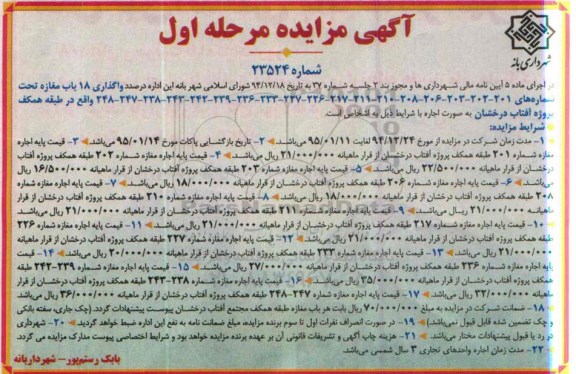 آگهی مزایده مرحله اول
شهرداری بانه
شماره ۲۳۵۲۴
در اجرای ماده ۵ آیین نامه مالی شهرداری ها و مجوز بند ۲ جلسه شماره ۳۷ به تاریخ ۹۴/۱۲/۱۸ شورای اسلامی شهر بانه این اداره درصدد واگذاری ۱۸ باب مغازه تحت
شماره‌های ۲۰۱-۲۰۲-۲۰۳-۲۰۶-۲۰۸-۲۱۰-۲۱۱-۲۱۷-۲۲۶-۲۲۷-۲۳۳-۲۳۶-۲۳۹-۲۴۲-۲۴۳-۲۳۸-۲۴۷-۲۴۸ واقع در طبقه همکف
پروژه آفتاب درخشان به صورت اجاره با شرایط ذیل به اشخاص است.
شرایط مزایده:
۱- مدت زمان شرکت در مزایده از مورخ ۹۴/۱۲/۲۴ لغایت ۹۵/۰۱/۱۱ می‌باشد. ۲- تاریخ بازگشایی پاکات مورخ ۹۵/۰۱/۱۴ می‌باشد. ۳- قیمت پایه اجاره
مغازه شماره ۲۰۱ طبقه همکف پروژه آفتاب درخشان از قرار ماهیانه ۲۱/۰۰۰/۰۰۰ ریال می‌باشد. ۴- قیمت پایه اجاره مغازه شماره ۲۰۲ طبقه همکف پروژه آفتاب
درخشان از قرار ماهیانه ۲۲/۵۰۰/۰۰۰ ریال می‌باشد. ۵- قیمت پایه اجاره مغازه شماره ۲۰۳ طبقه همکف پروژه آفتاب درخشان از قرار ماهیانه ۱۶/۵۰۰/۰۰۰ ریال
می‌باشد. ۶- قیمت پایه اجاره مغازه شماره ۲۰۶ طبقه همکف پروژه آفتاب درخشان از قرار ماهیانه ۱۸/۰۰۰/۰۰۰ ریال می‌باشد. ۷- قیمت پایه اجاره مغازه شماره
۲۰۸ طبقه همکف پروژه آفتاب درخشان از قرار ماهیانه ۱۸/۰۰۰/۰۰۰ ریال می‌باشد. ۸- قیمت پایه اجاره مغازه شماره ۲۱۰ طبقه همکف پروژه آفتاب درخشان از قرار
ماهیانه ۲۱/۰۰۰/۰۰۰ ریال می‌باشد. ۹- قیمت پایه اجاره مغازه شماره ۲۱۱ طبقه همکف پروژه آفتاب درخشان از قرار ماهیانه ۲۱/۰۰۰/۰۰۰ ریال می‌باشد.
۱۰- قیمت پایه اجاره مغازه شماره ۲۱۷ طبقه همکف پروژه آفتاب درخشان از قرار ماهیانه ۲۱/۰۰۰/۰۰۰ ریال می‌باشد. ۱۱- قیمت پایه اجاره مغازه شماره ۲۲۶
طبقه همکف پروژه آفتاب درخشان از قرار ماهیانه ۲۱/۰۰۰/۰۰۰ ریال می‌باشد. ۱۲- قیمت پایه اجاره مغازه شماره ۲۲۷ طبقه همکف پروژه آفتاب درخشان از قرار
ماهیانه ۲۱/۰۰۰/۰۰۰ ریال می‌باشد. ۱۳- قیمت پایه اجاره مغازه شماره ۲۳۳ طبقه همکف پروژه آفتاب درخشان از قرار ماهیانه ۳۰/۰۰۰/۰۰۰ ریال می‌باشد. ۱۴- قیمت
پایه اجاره مغازه شماره ۲۳۶ طبقه همکف پروژه آفتاب درخشان از قرار ماهیانه ۲۷/۰۰۰/۰۰۰ ریال می‌باشد. ۱۵- قیمت پایه اجاره مغازه شماره ۲۳۹-۲۴۲ طبقه
همکف پروژه آفتاب درخشان از قرار ماهیانه ۳۵/۰۰۰/۰۰۰ ریال می‌باشد. ۱۶- قیمت پایه اجاره مغازه شماره ۲۳۸-۲۴۳ طبقه همکف پروژه آفتاب درخشان از قرار
ماهیانه ۳۲/۰۰۰/۰۰۰ ریال می‌باشد. ۱۷- قیمت پایه اجاره مغازه شماره ۲۴۷-۲۴۸ طبقه همکف پروژه آفتاب درخشان از قرار ماهیانه ۳۶/۰۰۰/۰۰۰ ریال می‌باشد.
۱۸- ضمانت شرکت در مزایده به مبلغ ۷۰/۰۰۰/۰۰۰ ریال بابت هر باب مغازه طبقه همکف مجتمع آفتاب درخشان پیوست پیشنهادات گردد. (چک جاری، سفته بانکی
و چک تضمین شده قابل قبول نمی‌باشد) ۱۹- در صورت انصراف نفرات اول تا سوم برنده مزایده، مبلغ ضمانت نامه به نفع این اداره ضبط خواهد گردید. ۲۰- شهرداری
در رد یا قبول پیشنهادات مختار می‌باشد. ۲۱- هزینه چاپ آگهی و تشریفات قانونی آن بر عهده برنده مزایده خواهد بود و شرایط اختصاصی پیوست مدارک مزایده می گردد.
۲۲- مدت زمان اجاره واحدهای تجاری ۳ سال شمسی می‌باشد.
بابک رستم‌پور- شهردار بانه